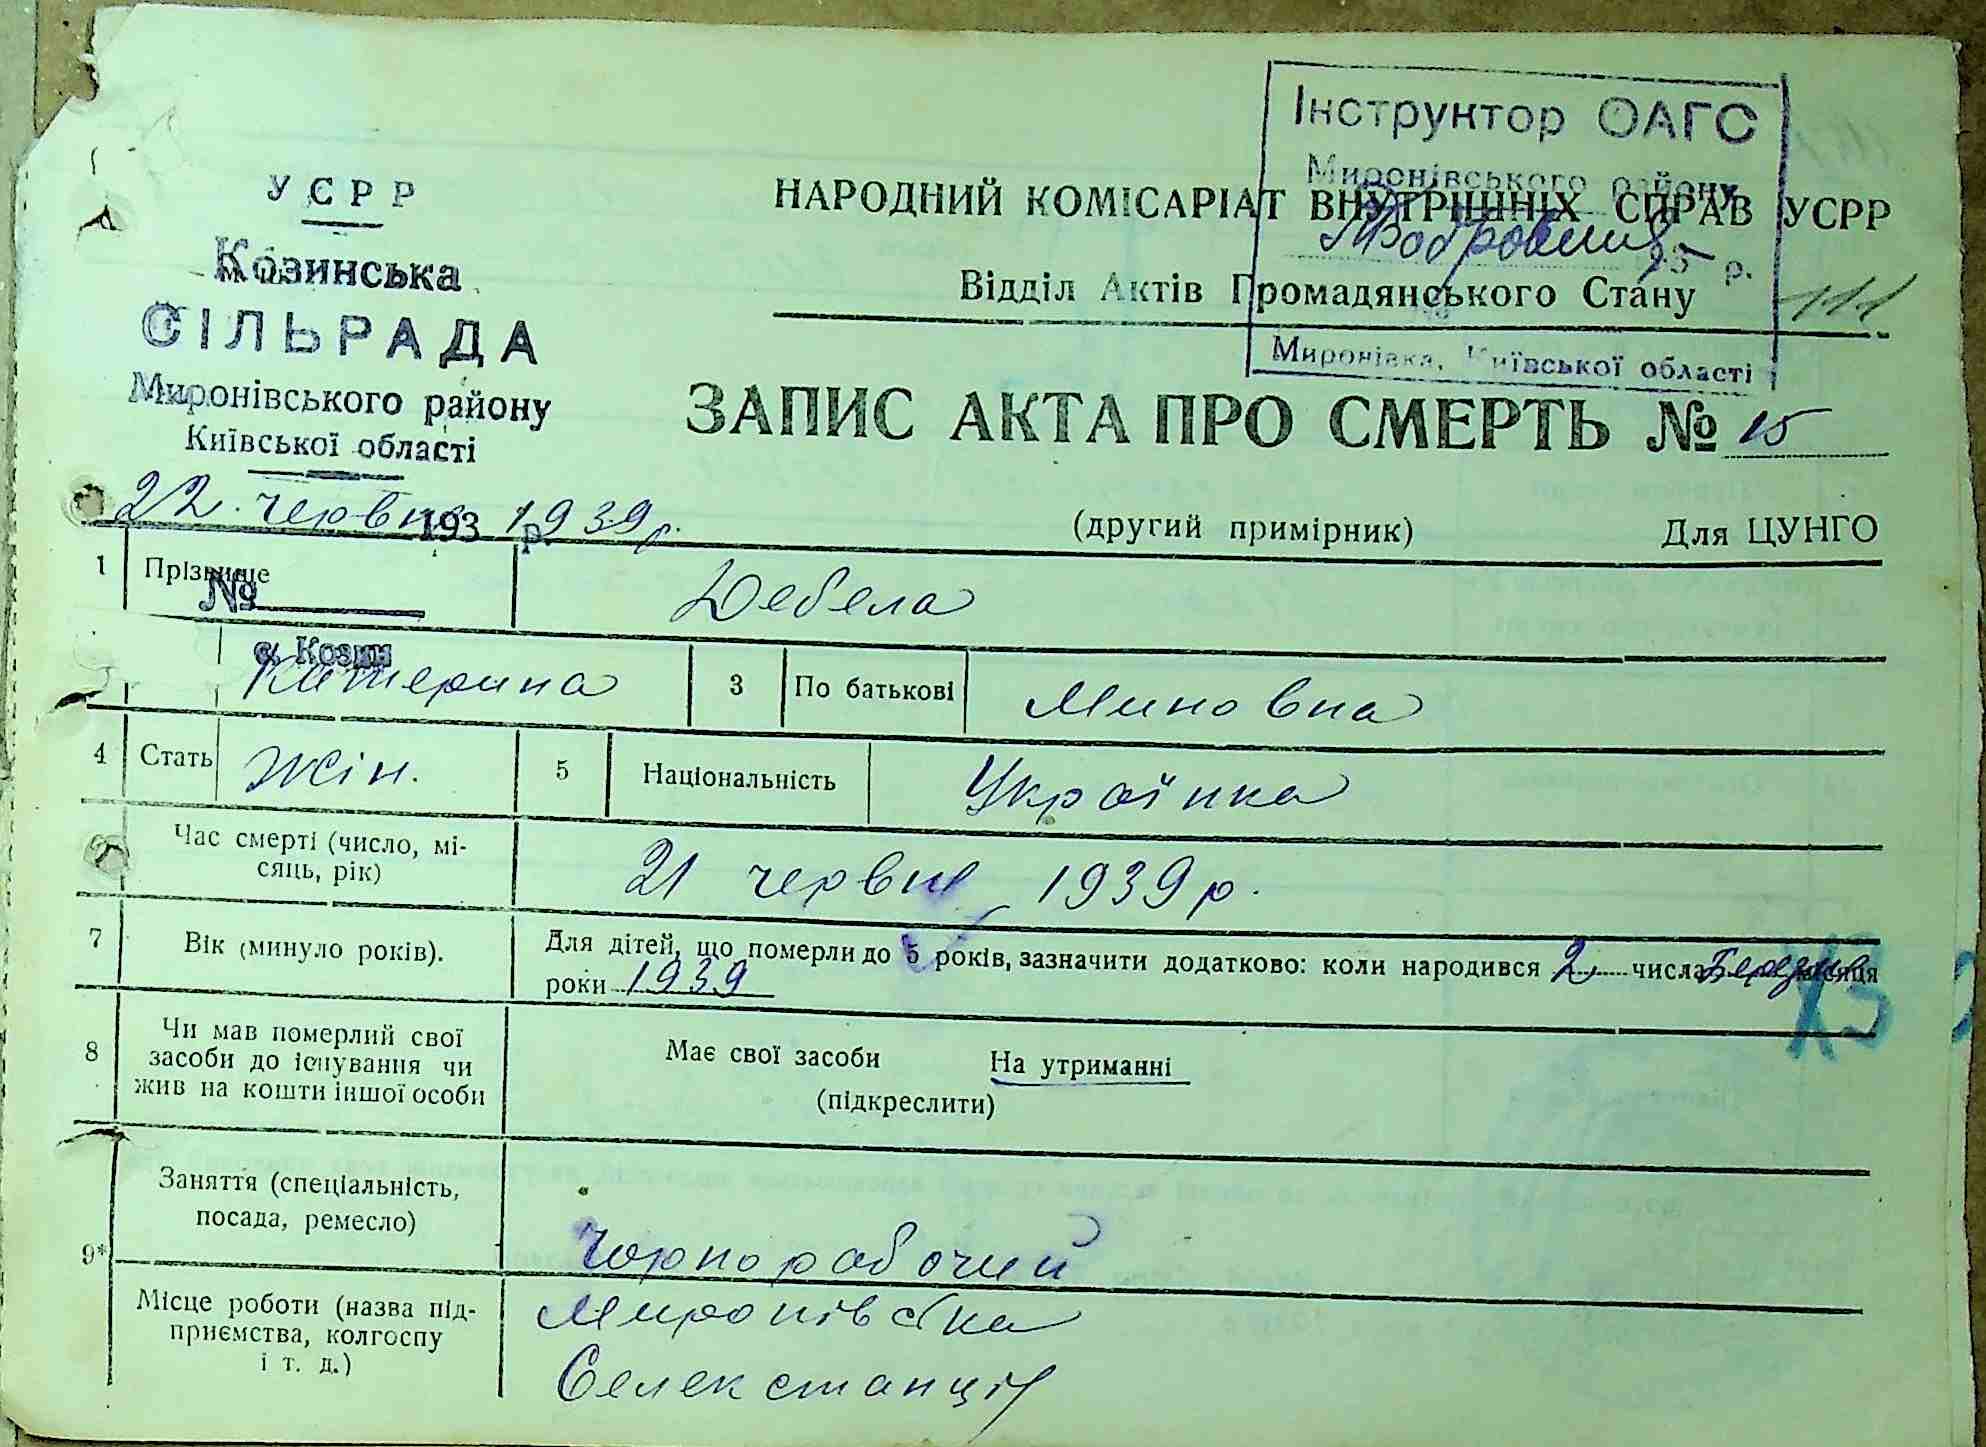 Інструктор ОАГС
Миронівського району
р.
Миронівка, Київської області
УСРР
Козинська
СІЛЬРАДА
Миронівського району
Київської області
22 червня 193 1939 р.
№
с. Козин
НАРОДНИЙ КОМІСАРІАТ ВНУТРІШНІХ СПРАВ УСРР
Відділ Актів Громадянського Стану
111
ЗАПИС АКТА ПРО СМЕРТЬ № 15
(другий примірник) Для ЦУНГО
1 Прізвище Дебела
Катерина 3 По батькові Миновна
4 Стать Жін. 5 Національність Українка
Час смерті (число, мі-
сяць, рік)
21 червня 1939 р.
7 Вік (минуло років).
Для дітей, що померли до 5 років, зазначити додатково: коли народився 2 числа Березня місяця
роки 1939
8 Чи мав померлий свої
засоби до існування чи
жив на кошти іншої особи
Має свої засоби На утриманні
(підкреслити)
9* Заняття (спеціальність,
посада, ремесло)
Чорнорабочий
Місце роботи (назва під-
приємства, колгоспу
і т. д.)
Миронівська
Селекстанція